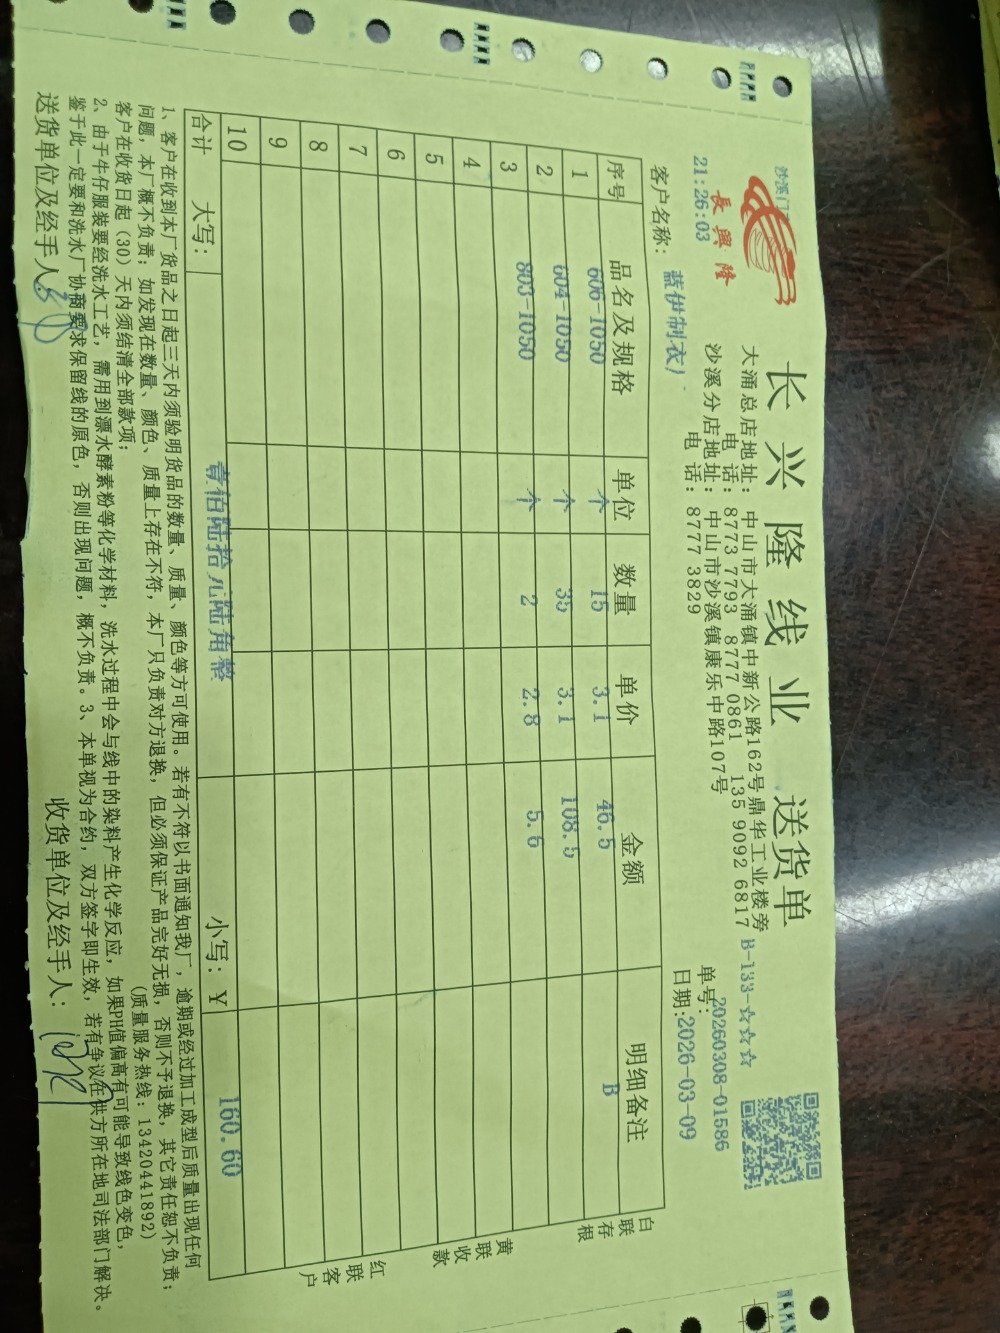 長興隆
长兴隆线业 送货单
沙溪门
21:26:03
大涌总店地址：中山市大涌镇中新公路162号鼎华工业楼旁
电 话：8773 7793 8777 0861 135 9092 6817
沙溪分店地址：中山市沙溪镇康乐中路107号
电 话：8777 3829
B-133-☆☆☆
单号：20260308-01586
日期：2026-03-09
客户名称：蓝伊制衣厂
序号 品名及规格 单位 数量 单价 金额 明细备注
1 606-1050 个 15 3.1 46.5 B
2 604-1050 个 35 3.1 108.5
3 803-1050 个 2 2.8 5.6
4
5
6
7
8
9
10
合计 大写：壹佰陆拾元陆角整 小写：￥ 160.60
白联存根
黄联收款
红联客户
1、客户在收到本厂货品之日起三天内须验明货品的数量、质量、颜色等方可使用。若有不符以书面通知我厂，逾期或经过加工成型后质量出现任何
问题，本厂概不负责；如发现在数量、颜色、质量上存在不符，本厂只负责对方退换，但必须保证产品完好无损，否则不予退换，其它责任恕不负责；
客户在收货日起（30）天内须结清全部款项； （质量服务热线：13420441892）
2、由于牛仔服装要经洗水工艺，需用到漂水酵素粉等化学材料，洗水过程中会与线中的染料产生化学反应，如果PH值偏高有可能导致线色变色，
鉴于此一定要和洗水厂协商要求保留线的原色，否则出现问题，概不负责。3、本单视为合约，双方签字即生效，若有争议在供方所在地司法部门解决。
送货单位及经手人： 收货单位及经手人：